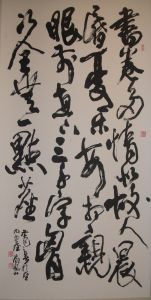 書卷多情似故人晨
昏憂乐每相親
眼前直下三千字胸
次全無一點塵